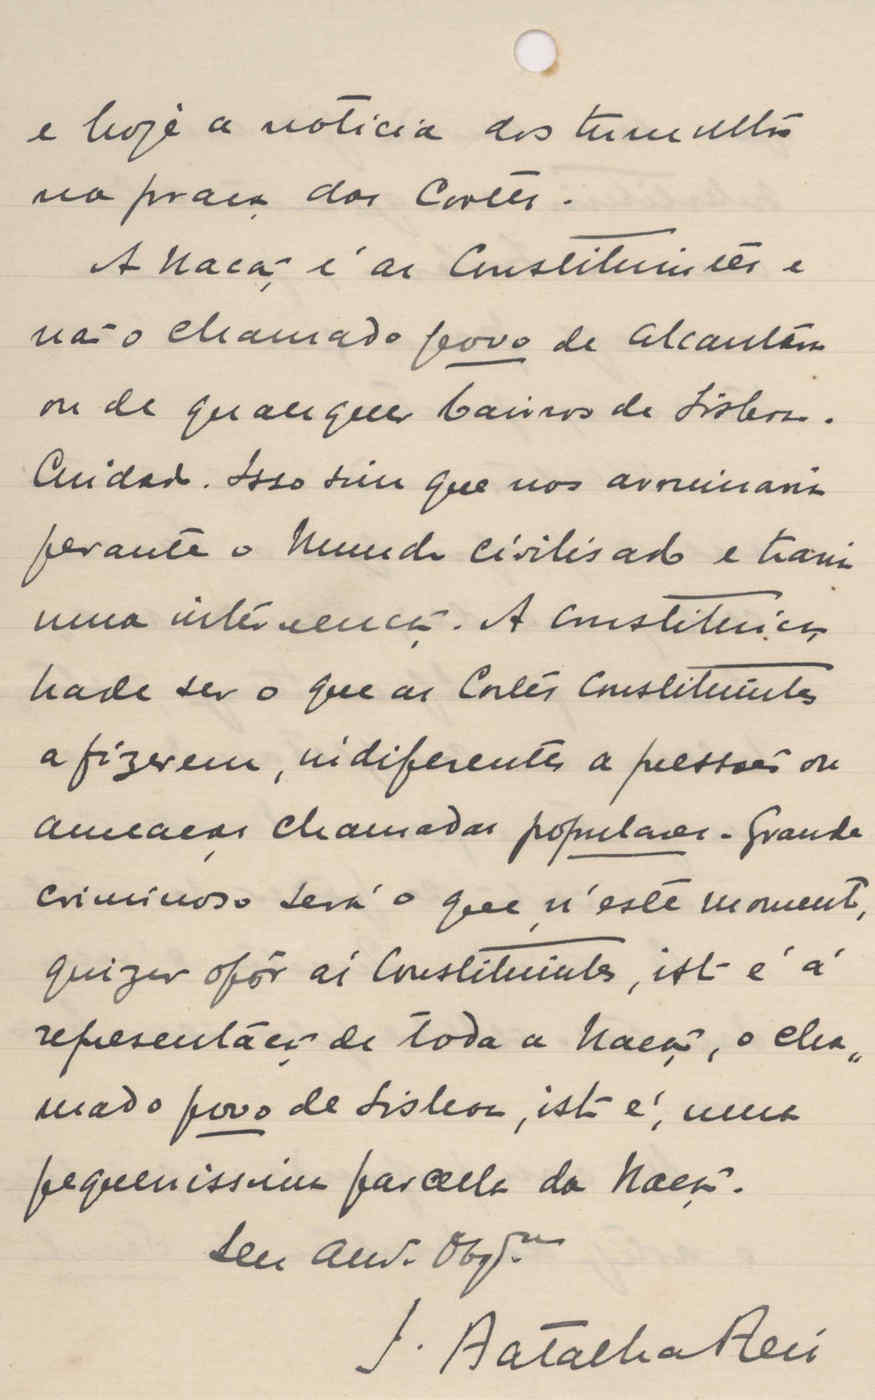 e hoje a noticia dos tumultos
na praça das Cortes.
A Nação é as Constituintes e
não o chamado povo de Alcantara
ou de quaesquer bairros de Lisboa.
Cuidado. Isso sim que nos arruinaria
perante o Mundo civilisado e traria
uma intervenção. A Constituição
hade ser o que as Cortes Constituintes
a fizerem, indiferentes a pressões ou
ameaças chamadas populares. Grande
criminoso será o que n'este momento,
quizer opôr ás Constituintes, isto é á
representação de toda a Nação, o cha„
mado povo de Lisboa, isto é, uma
pequenissima parcella da Nação.
Seu Amo. Obgdmo
J. Batalha Reis